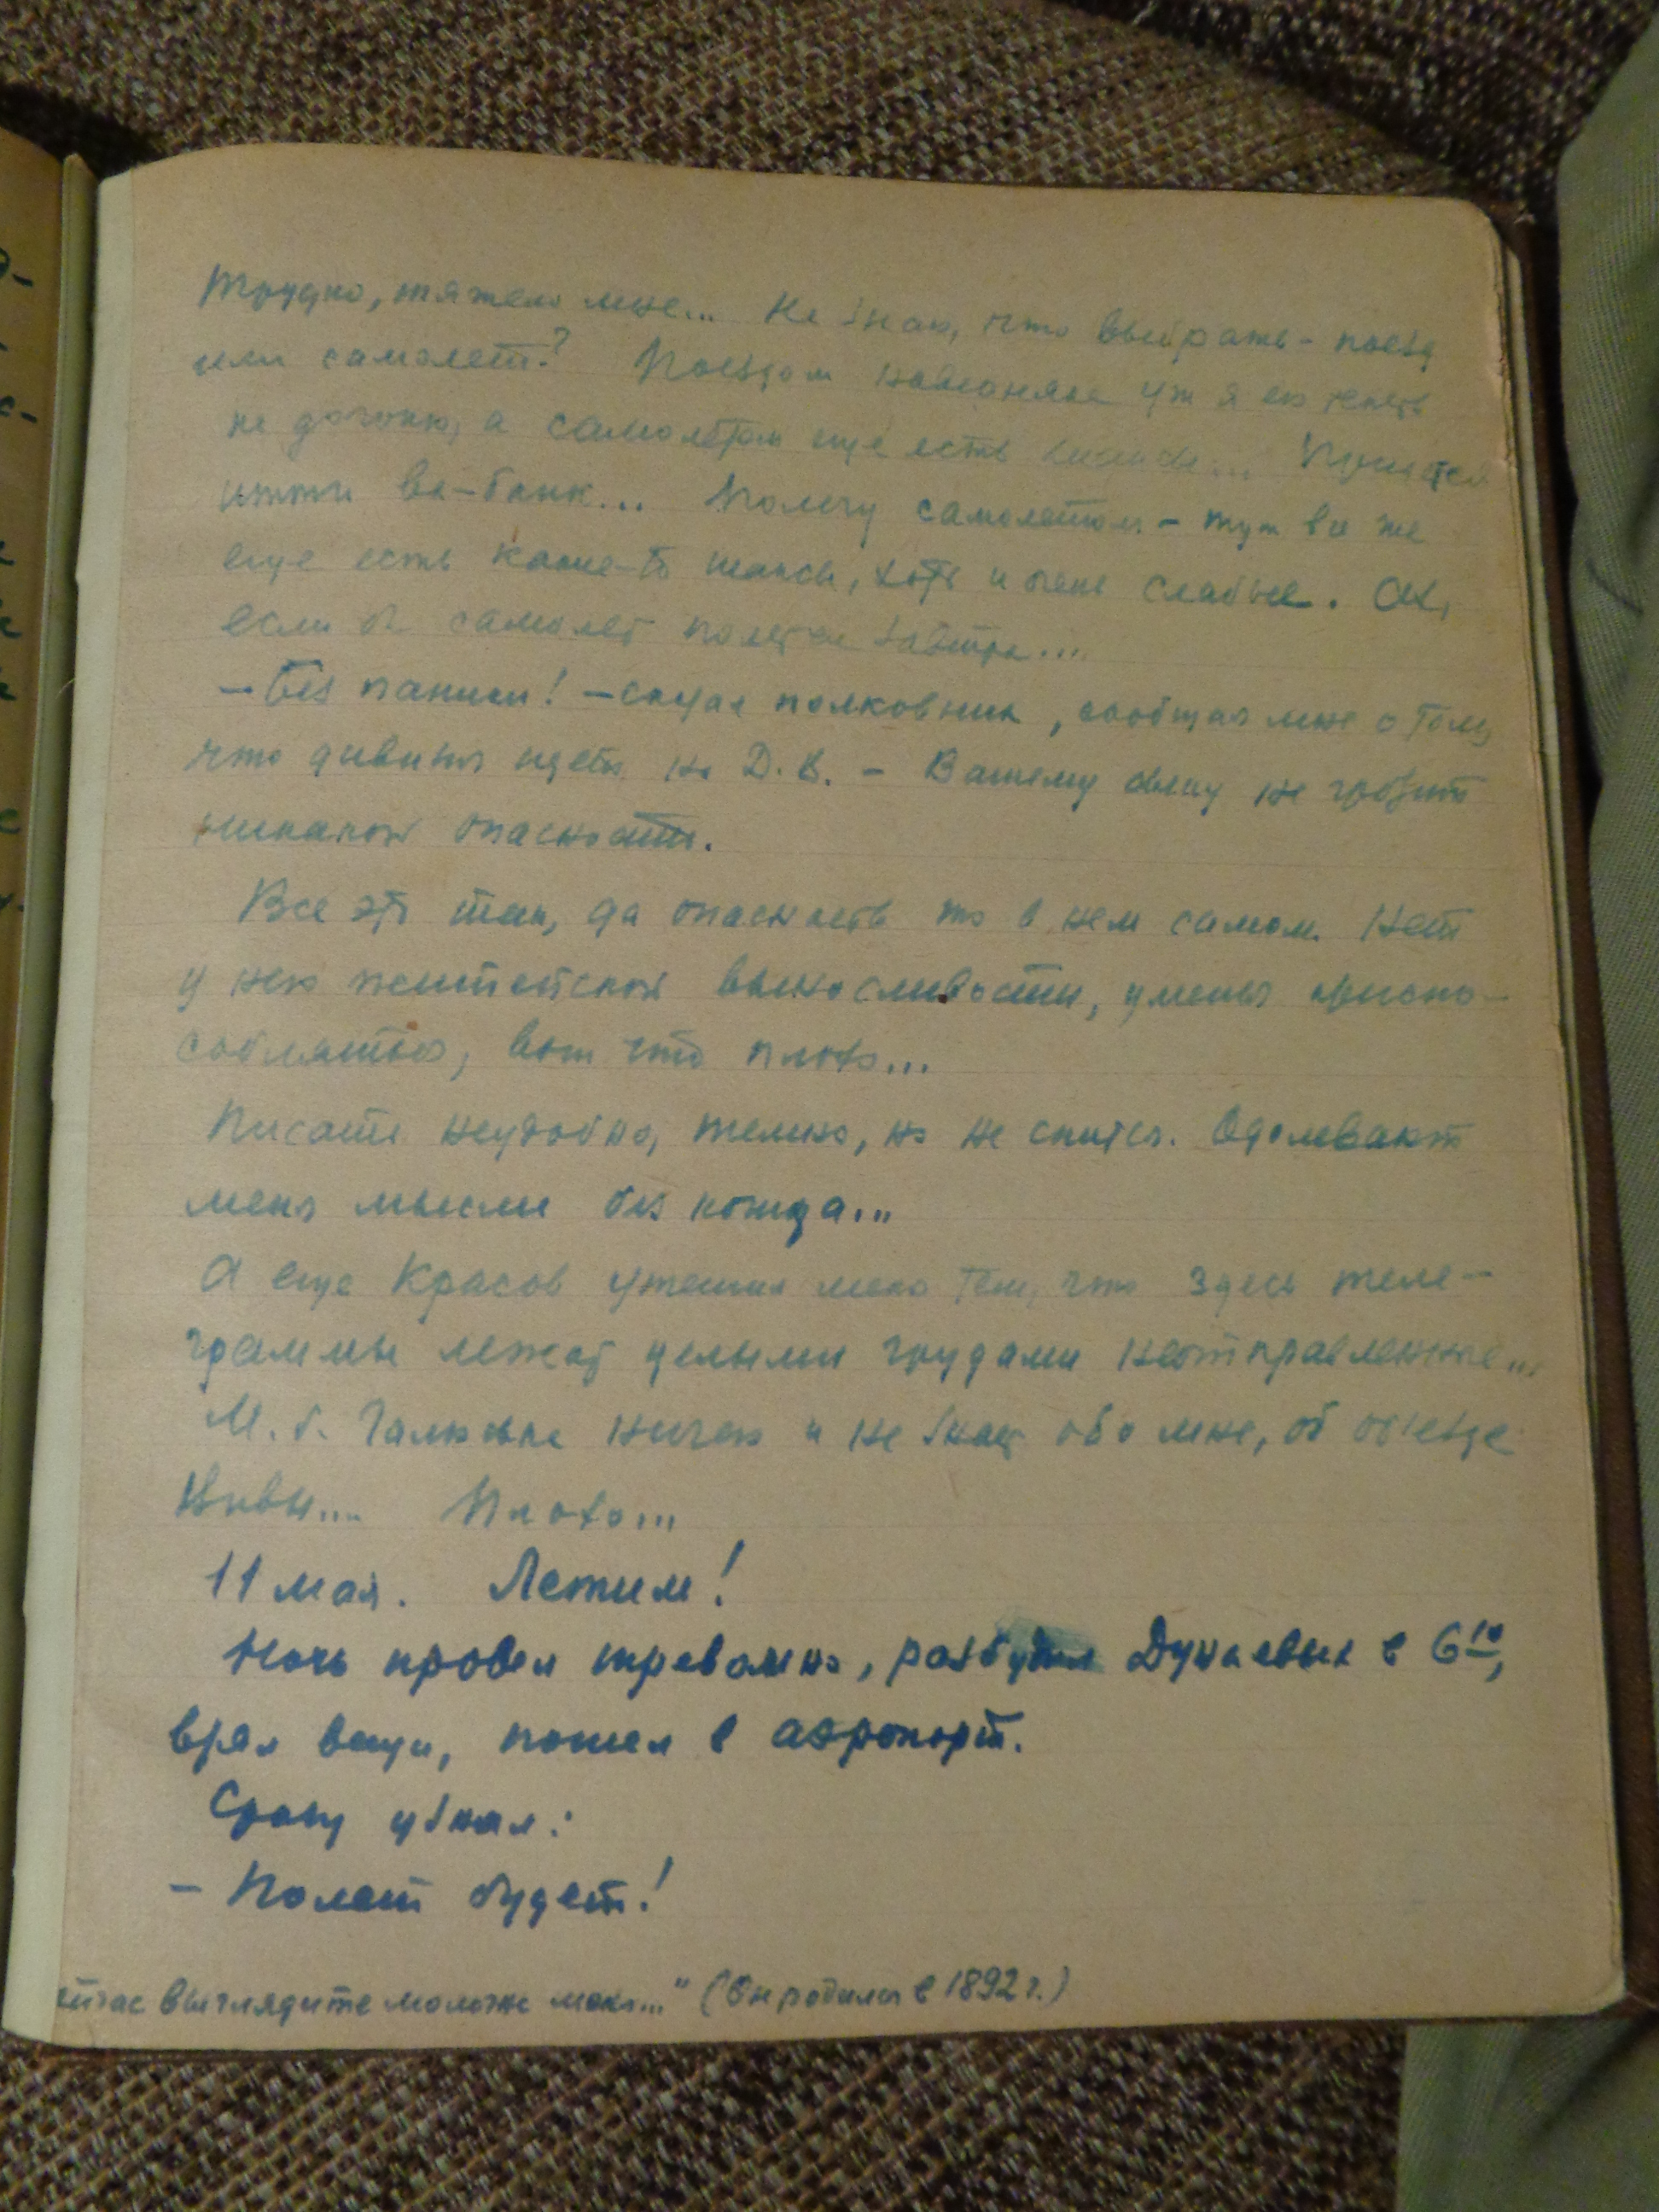 Трудно, тяжело мне... Не знаю, что выбирать - поезд
или самолет? Поездом наверняка уж я его теперь
не догоню, а самолетом еще есть надежда... Придется
итти ва-банк... Полечу самолетом - тут все же
еще есть какие-то шансы, хоть и очень слабые. Ах,
если б самолет полетел завтра...
- Без паники! - сказал полковник, сообщая мне о том,
что дивизия идет на Д.В. - Вашему сыну не грозит
никакой опасности.
Все это так, да опасность то в нем самом. Нет
у него житейской выносливости, уменья приспо-
собляться, вот что плохо...
Писать неудобно, темно, но не спится. Одолевают
меня мысли без конца...
А еще Красов утешил меня тем, что здесь теле-
граммы лежат целыми грудами неотправленные...
М.б. Галюська ничего и не знает обо мне, об отъезде
Вивы.... Плохо...
11 мая. Летим!
Ночь провел тревожно, разбудил Дунаевых в 6¹⁰,
взял вещи, пошел в аэропорт.
Сразу узнал:
- Полет будет!
ейчас выглядите моложе меня..." (Он родился в 1892 г.)